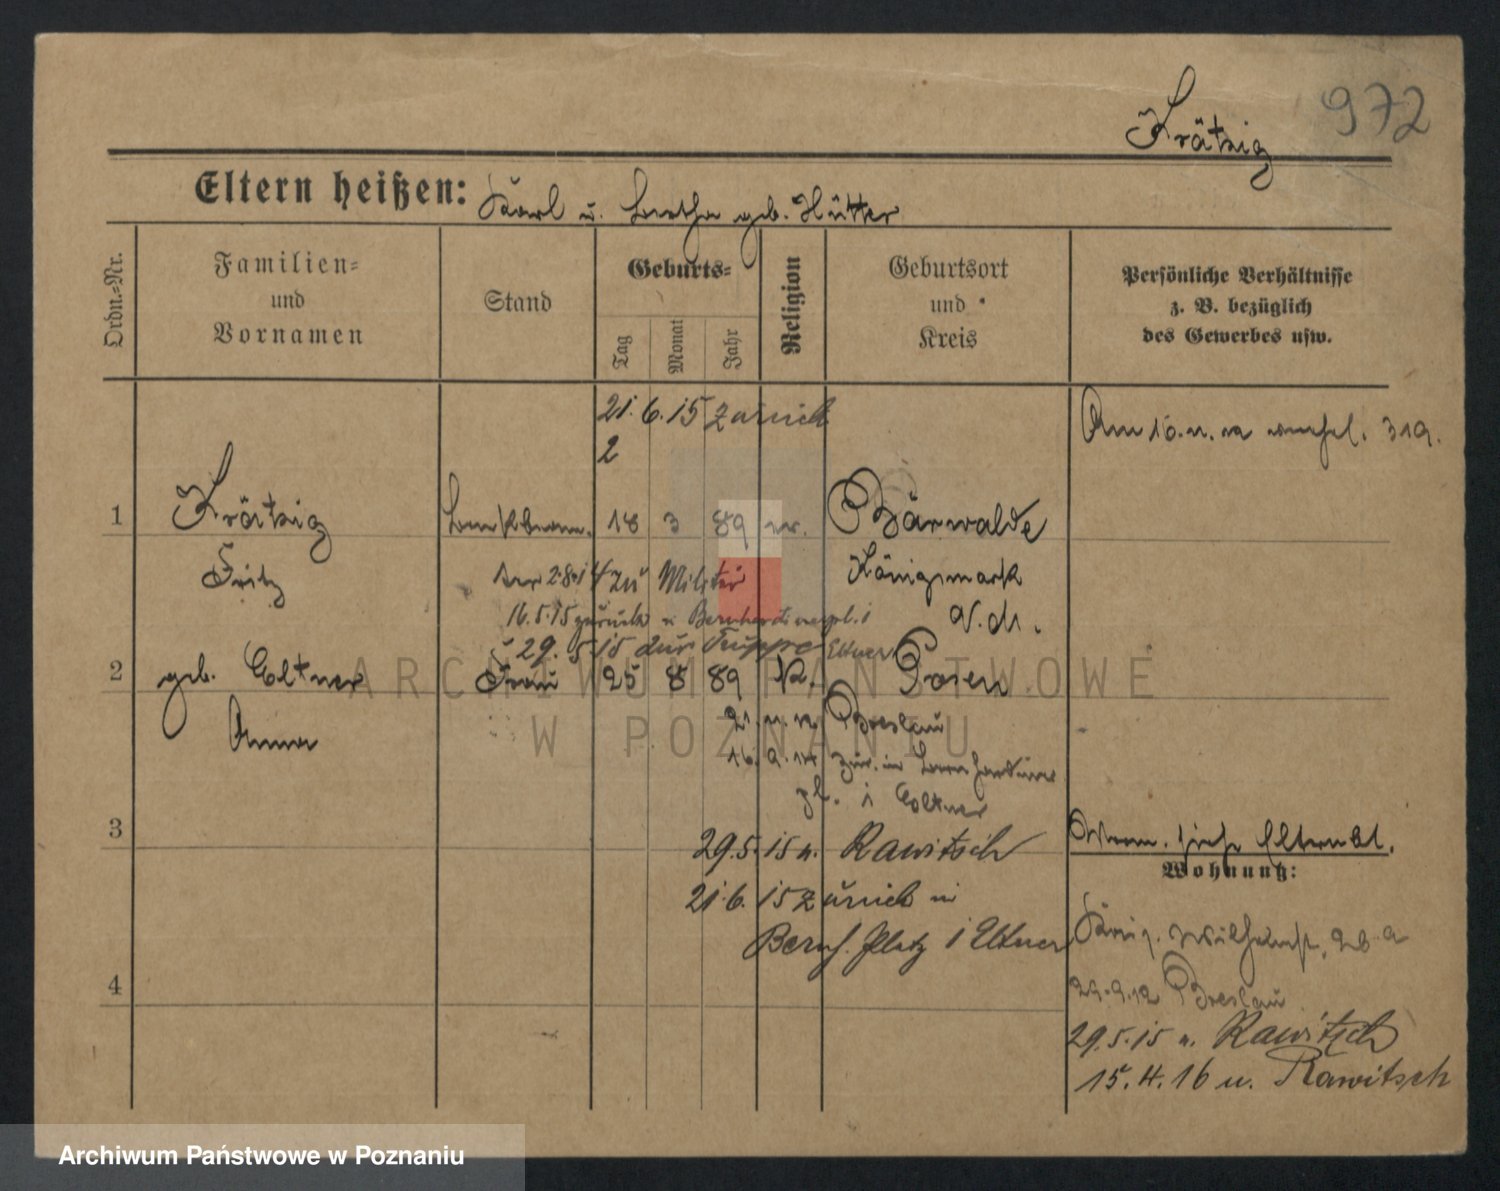 972
Krätzig
Eltern heißen: Karl u. Bertha geb. Hütter
Ordn.-Nr.
Familien-
und
Vornamen
Stand
Geburts-
Tag
Monat
Jahr
Religion
Geburtsort
und
Kreis
Persönliche Verhältnisse
z. B. bezüglich
des Gewerbes usw.
21.6.15 zurück
2
Am 16.
1 Krätzig 18 3 89 ev. Bärwalde
Fritz
2.8.14 zu Militär
Königsmark
N.M.
16.5.15 zurück
29.5.15 zur Truppe Eltner
2 geb. Eltner Frau 25 8 89 Posen
Anna
Breslau
16.9.14 zur. in
pl. 1 Eltner
3
29.5.15 n. Rawitsch
21.6.15 zurück in
Bernh. Platz 1 Eltner
4
siehe Elternbl.
Wohnung:
König. Wilhelmst. 26 a
29.9.12 Breslau
29.5.15 n. Rawitsch
15.4.16 n. Rawitsch
ARCHIWUM PAŃSTWOWE
W POZNANIU
Archiwum Państwowe w Poznaniu